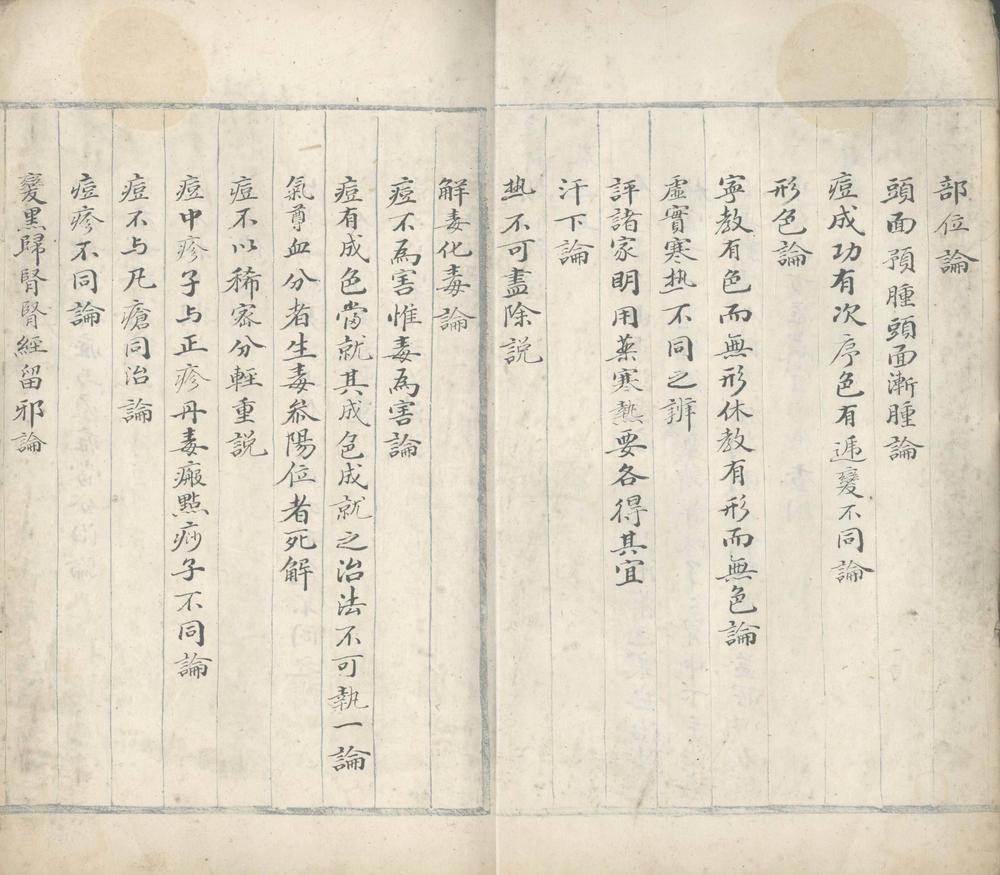 部位論
頭面預腫頭面漸腫論
痘成功有次序色有遞變不同論
形色論
寧教有色而無形休教有形而無色論
虛實寒热不同之辨
評諸家明用藥寒熱要各得其宜
汗下論
热不可盡除説
解毒化毒論
痘不為害惟毒為害論
痘有成色當就其成色成就之治法不可執一論
氣尊血分者生毒叅陽位者死解
痘不以稀密分輕重説
痘中疹子与正疹丹毒癍點痧子不同論
痘不与凡瘡同治論
痘疹不同論
變黒歸腎腎經留邪論